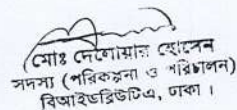 (মোঃ দেলোয়ার হোসেন)
সদস্য (পরিকল্পনা ও পরিচালন)
বিআইডব্লিউটিএ, ঢাকা।